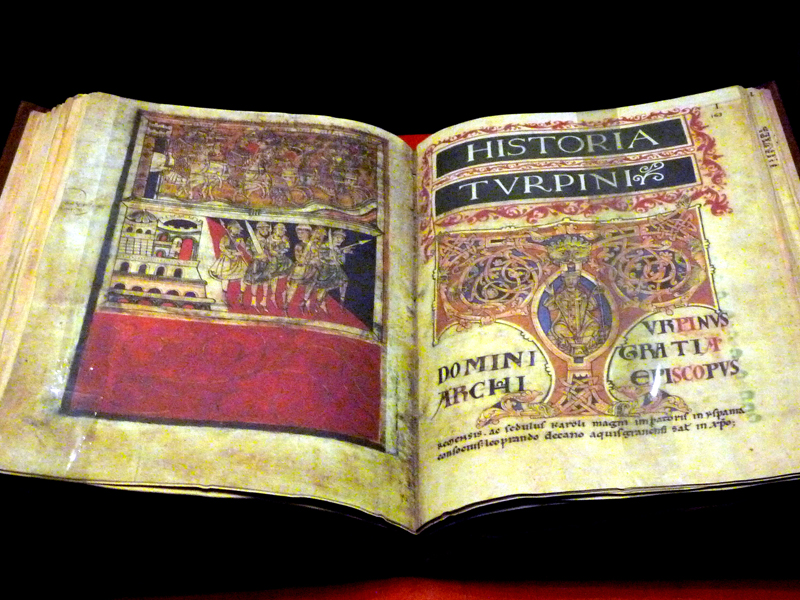 HISTORIA
TVRPINI
VRPINVS
DOMINI GRATIA
ARCHI EPISCOPVS
REMENSIS. ac sedulus Karoli magni imperatoris in yspania
consocius: leoprando decano aquisgranensi salt in xpo;